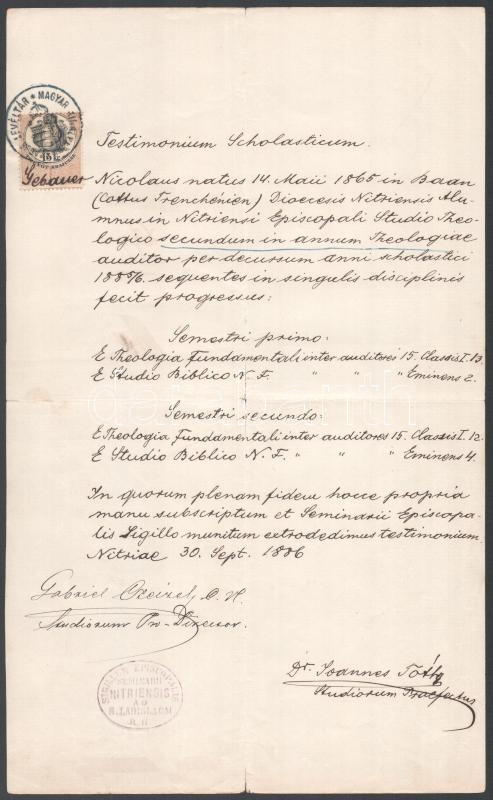 LEVÉLTÁR * MAGYAR
15
Testimonium Scholasticum.
Gebauer Nicolaus natus 14. Maii 1865 in Baan
(Cottus Trenchénien) Diocecsis Nitriensis Alu-
mnus in Nitriensi Episcopali Studio Theo-
logico secundum in annum Theologiae
auditor per decursum anni scholastici
1885/6. sequentes in singulis disciplinis
fecit progressus:
Semestri primo:
E Theologia Fundamentali inter auditores 15. Classis I. 13.
E Studio Biblico N. F. " " " Eminens 2.
Semestri secundo:
E Theologia Fundamentali inter auditores 15. Classis I. 12.
E Studio Biblico N. F. " " " Eminens 4.
In quorum plenam fidem hocce propria
manu subscriptum et Seminarii Episcopa-
lis Sigillo munitum extradedimus testimonium.
Nitriae 30. Sept. 1886
Gabriel
Studiorum Pro-Director.
SIGILLUM EPISCOPALIS
SEMINARII
NITRIENSIS
AD
S. LADISLAUM
Dr. Joannes Tóth
Studiorum Praefectus